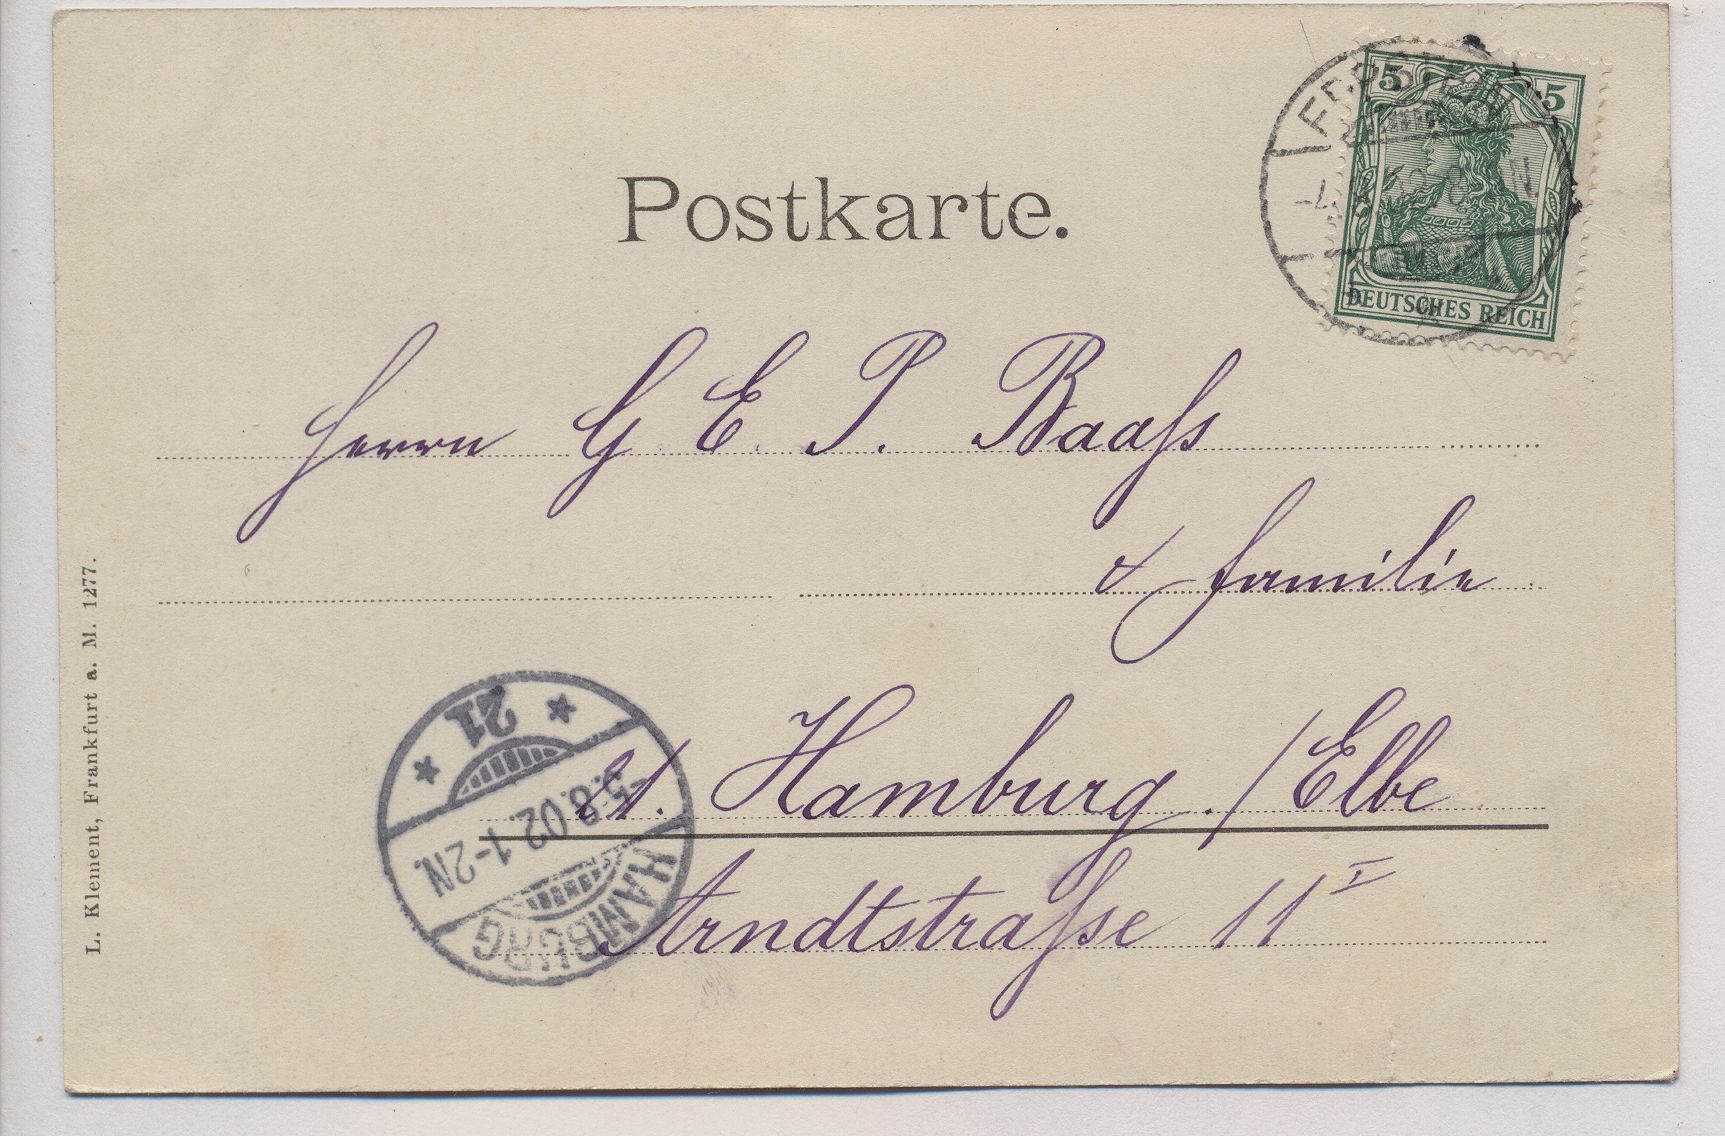 Postkarte.
5 5
DEUTSCHES REICH
Herrn G. E. P. Baaſs
& Familie
Hamburg. / Elbe
Arndtstraſse 11 I
21
5.8.02. 1-2N.
HAMBURG
L. Klement, Frankfurt a. M. 1277.